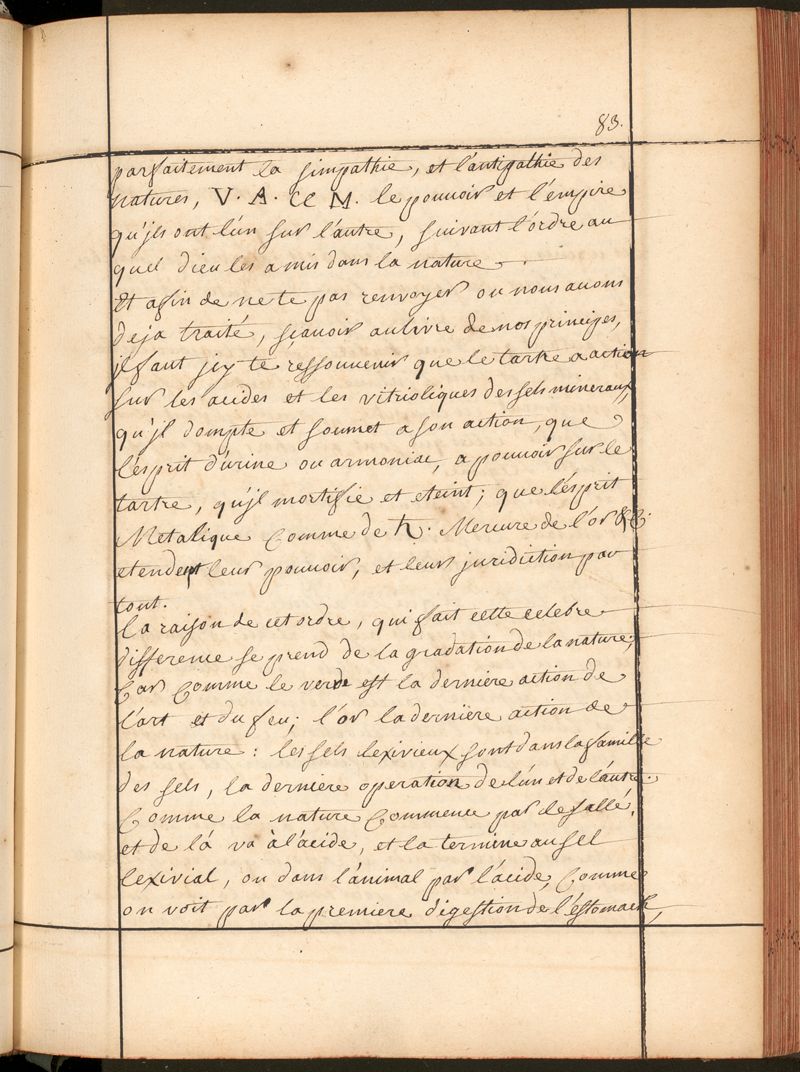 83.
parfaitement la simpathie, et l'antipathie des
natures, V. A. et M. le pouvoir et l'empire
qu'jls ont l'un sur l'autre, suivant l'ordre au
quel dieu les a mis dans la nature.
Et afin de ne te pas renvoyer ou nous avons
deja traité, sçavoir au livre de nos principes,
jl faut jcy te ressouvenir que le tartre a action
sur les acides et les vitrioliques des sels mineraux,
qu'jl dompte et soumet a son action, que
l'ésprit d'urine ou armoniac, a pouvoir sur le
tartre, qu'jl mortifie et eteint; que l'ésprit
Metalique Comme de ♄. Mercure de l'or &c.
etendent leur pouvoir, et leur juridiction par
tout.
la raison de cet ordre, qui fait cette celebre
difference se prend de la gradation de la nature;
Car Comme le verre est la derniere action de
l'art et du feu; l'or la derniere action de
la nature: les sels lexivieux sont dans la famille
des sels, la derniere operation de l'un et de l'autre.
Comme la nature Commence par le sallé,
et de lá va à l'ácide, et la termine au sel
lexivial, ou dans l'ánimal par l'ácide, Comme
on voit par la premiere digestion de l'éstomach,